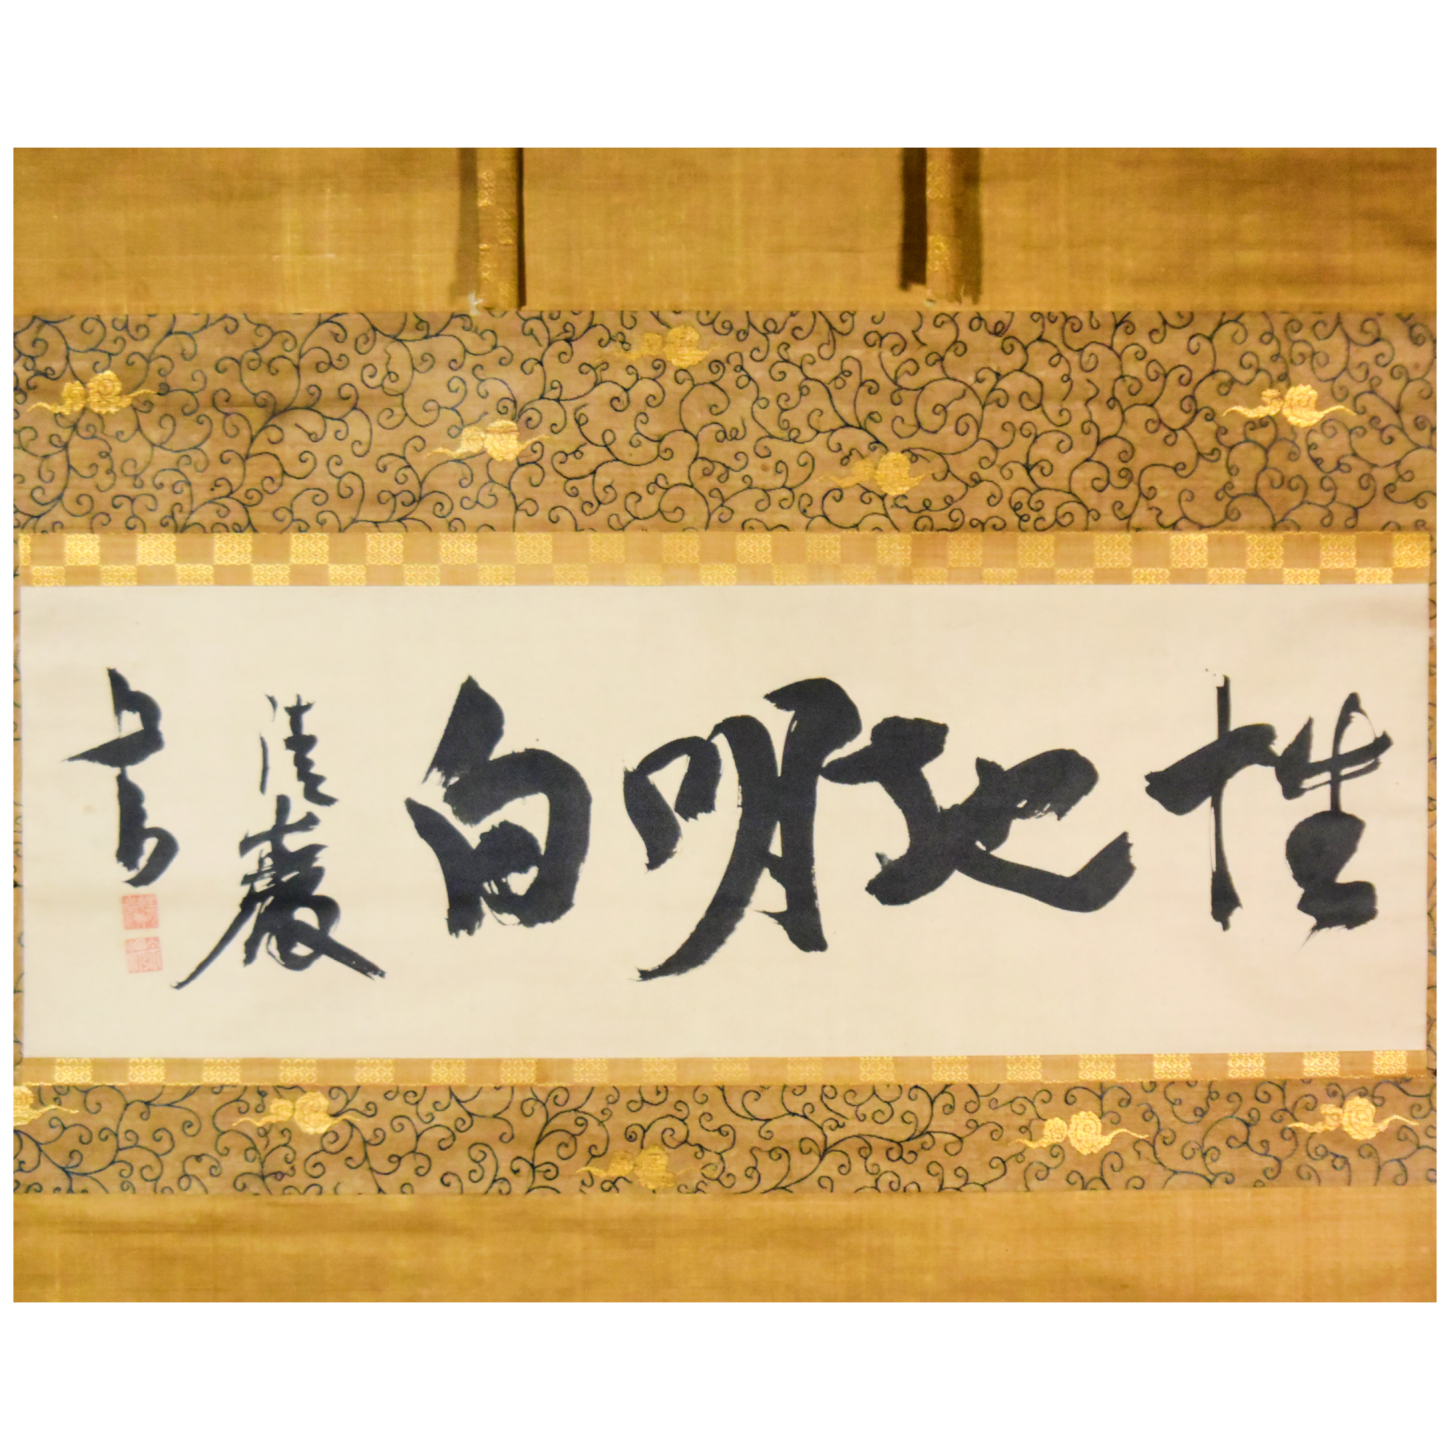 性地明白
清巖書